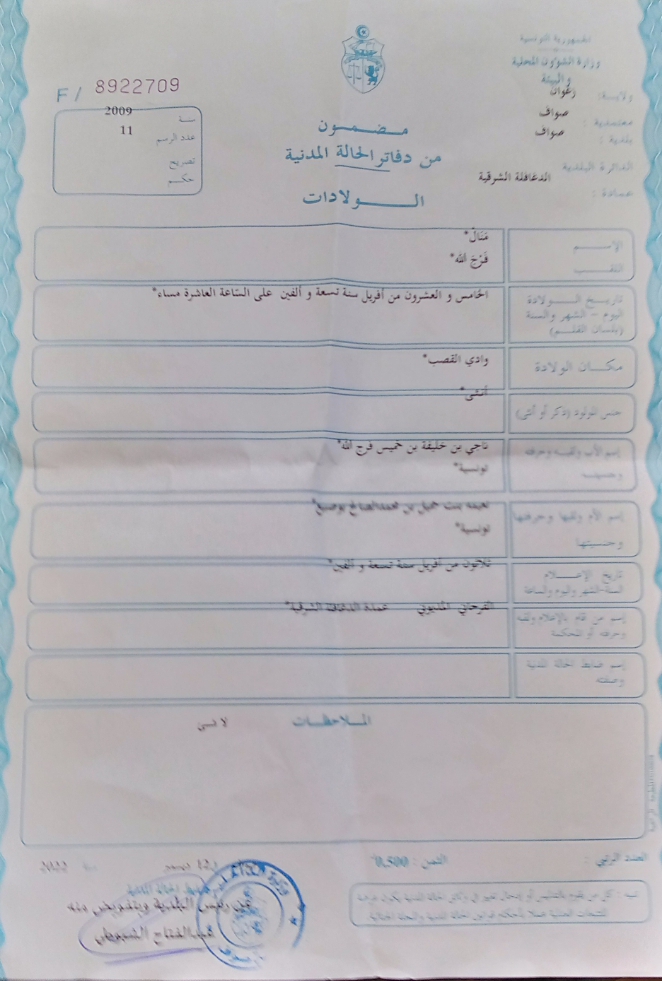 الجمهورية التونسية
وزارة الشؤون المحلية
والبيئة
ولاية: زغوان
معتمدية : صواف
بلدية : صواف
الدائرة البلدية
عمادة : الدغافلة الشرقية
F / 8922709
سنة 2009
عدد الرسم 11
تصريح
حكم
مضمون
من دفاتر الحالة المدنية
الولادات
الإسم مَنَالْ*
اللقب فَرْجَ الله*
تاريخ الولادة الخامس و العشرون من أفريل سنة تسعة و ألفين على السّاعة العاشرة مساء*
اليوم - الشهر والسنة
(بلسان القلم)
مكان الولادة وادي القصب*
جنس المولود (ذكر أو أنثى) أنثى*
إسم الأب ولقبه وحرفته ناجي بن خليفة بن خميس فرج الله*
وجنسيته تونسية*
إسم الأم ولقبها وحرفتها نعيمه بنت جميل بن محمدالصالح بوصبيع*
وجنسيتها تونسية*
تاريخ الإعلام ثلاثون من أفريل سنة تسعة و ألفين*
السنة-الشهر واليوم والساعة
إسم من قام بالإعلام ولقبه الفرجاني المديوني عمدة الدغافلة الشرقية*
وحرفته أو المحكمة
إسم ضابط الحالة المدنية
وصفته
الملاحظات
لا شيئ
العدد الرتبي :
الثمن : 0,500
12 ديسمبر 2022
ضابط الحالة المدنية
عن رئيس البلدية وبتفويض منه
عبدالفتاح الشويطي
تنبيه : كل من يقوم بالتدليس أو إدخال تغيير في وثائق الحالة المدنية يكون عرضة
للتتبعات العدلية عملا بأحكام قانون الحالة المدنية والمجلة الجنائية.